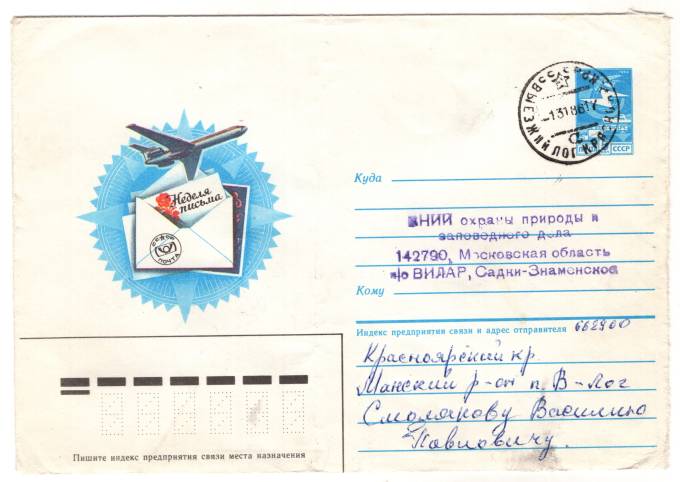 Неделя
письма
АВИА
ПОЧТА
ВЫЕЗЖИЙ ЛОГ КРАСНОЯР
СССР
-131186 17
ПОЧТА СССР
Куда
ВНИИ охраны природы и
заповедного дела
142790, Московская область
п/о ВИЛАР, Садки-Знаменское
Кому
Индекс предприятия связи и адрес отправителя 662900
Красноярский кр.
Манский р-он п. В-Лог
Смолякову Василию
Павловичу.
Пишите индекс предприятия связи места назначения